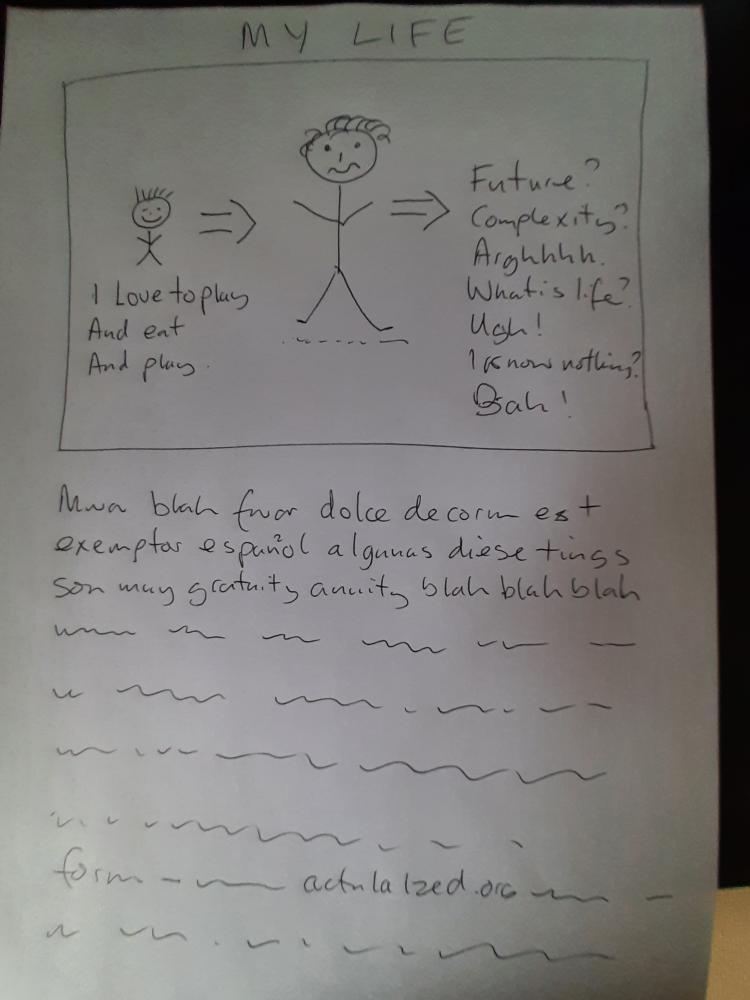 MY LIFE
I Love to play
And eat
And play.
Future?
Complexity?
Arghhhh.
What is life?
Ugh!
I know nothing?
Bah!
Mwa blah fwar dolce decorm est
exemptar español algunas diese tings
son muy gratuity annuity blah blah blah
form actulalzed.org